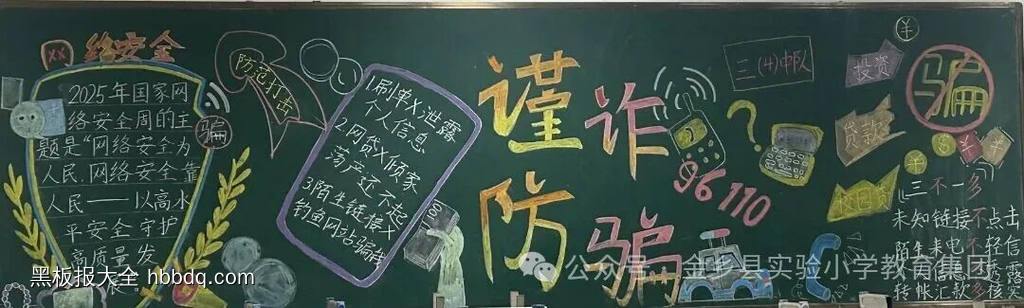 网络安全
2025年国家网
络安全周的主
题是“网络安全为
人民，网络安全靠
人民——以高水
平安全守护
高质量发
展
骗
防范打击
1.刷单X泄露
个人信息
2.网贷X倾家
荡产还不起
3.陌生链接X
钓鱼网站骗局
谨防
诈骗
96110
三(4)中队
投资
贷款
校园贷
骗
¥
¥
$
¥
三不一多
未知链接不点击
陌生来电不轻信
个人信息不透露
转帐汇款多核实
黑板报大全 hbbdq.com
公众号·金乡县实验小学教育集团